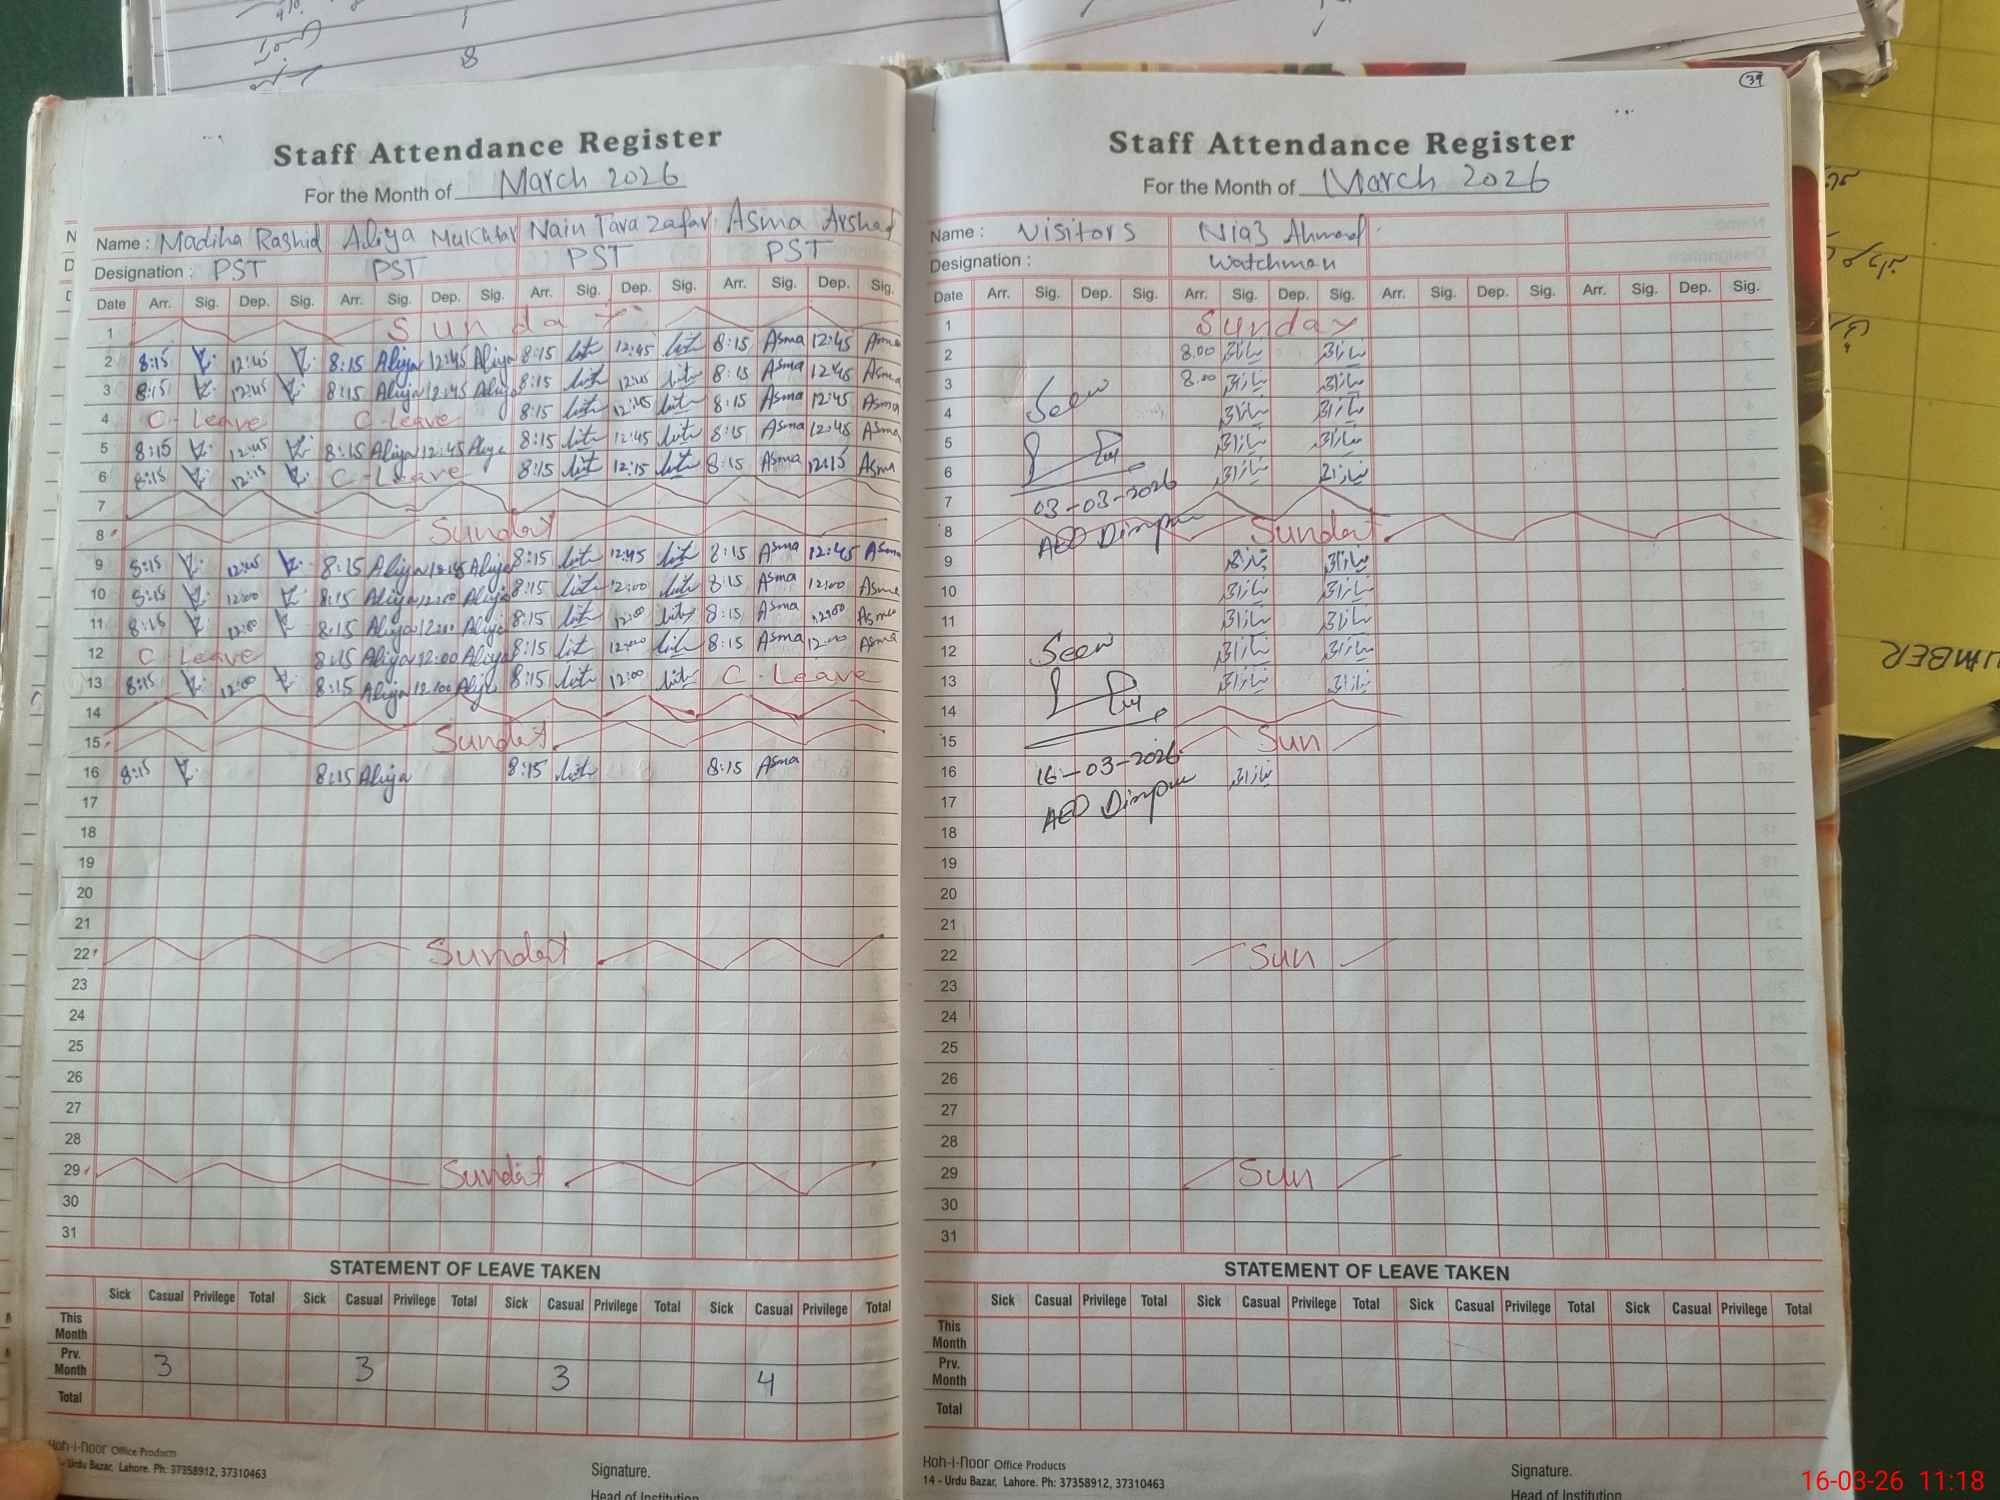 39
Staff Attendance Register
For the Month of March 2026
Name : Madiha Rashid Aliya Mukhtar Nain Tara Zafar Asma Arshad
Designation : PST PST PST PST
Date Arr. Sig. Dep. Sig. Arr. Sig. Dep. Sig. Arr. Sig. Dep. Sig. Arr. Sig. Dep. Sig.
1 Sunday
2 8:15 12:45 8:15 Aliya 12:45 Aliya 8:15 12:45 8:15 Asma 12:45 Asma
3 8:15 12:45 8:15 Aliya 12:45 Aliya 8:15 12:45 8:15 Asma 12:45 Asma
4 C-Leave C-leave 8:15 12:45 8:15 Asma 12:45 Asma
5 8:15 12:45 8:15 Aliya 12:45 Aliya 8:15 12:45 8:15 Asma 12:45 Asma
6 8:15 12:15 C-Leave 8:15 12:15 8:15 Asma 12:15 Asma
7
8 Sunday
9 8:15 12:45 8:15 Aliya 12:45 Aliya 8:15 12:45 8:15 Asma 12:45 Asma
10 8:15 12:00 8:15 Aliya 12:00 Aliya 8:15 12:00 8:15 Asma 12:00 Asma
11 8:15 12:00 8:15 Aliya 12:00 Aliya 8:15 12:00 8:15 Asma 12:00 Asma
12 C Leave 8:15 Aliya 12:00 Aliya 8:15 12:00 8:15 Asma 12:00 Asma
13 8:15 12:00 8:15 Aliya 12:00 Aliya 8:15 12:00 C-Leave
14
15 Sunday
16 8:15 8:15 Aliya 8:15 8:15 Asma
17
18
19
20
21
22 Sunday
23
24
25
26
27
28
29 Sunday
30
31
STATEMENT OF LEAVE TAKEN
Sick Casual Privilege Total Sick Casual Privilege Total Sick Casual Privilege Total Sick Casual Privilege Total
This Month
Prv. Month 3 3 3 4
Total
Koh-i-noor Office Products
Urdu Bazar, Lahore. Ph: 37358912, 37310463
Signature.
Head of Institution
Staff Attendance Register
For the Month of March 2026
Name : Visitors Niaz Ahmad
Designation : Watchman
Date Arr. Sig. Dep. Sig. Arr. Sig. Dep. Sig. Arr. Sig. Dep. Sig. Arr. Sig. Dep. Sig.
1 Sunday
2 8.00 نیاز احمد نیاز احمد
3 Seen 8.00 نیاز احمد نیاز احمد
4 نیاز احمد نیاز احمد
5 نیاز احمد نیاز احمد
6 نیاز احمد نیاز احمد
7 03-03-2026
8 AEO Sunday
9 نیاز احمد نیاز احمد
10 نیاز احمد نیاز احمد
11 نیاز احمد نیاز احمد
12 Seen نیاز احمد نیاز احمد
13 نیاز احمد نیاز احمد
14
15 Sun
16 16-03-2026 نیاز احمد
17 AEO
18
19
20
21
22 Sun
23
24
25
26
27
28
29 Sun
30
31
STATEMENT OF LEAVE TAKEN
Sick Casual Privilege Total Sick Casual Privilege Total Sick Casual Privilege Total Sick Casual Privilege Total
This Month
Prv. Month
Total
Koh-i-noor Office Products
14 - Urdu Bazar, Lahore. Ph: 37358912, 37310463
Signature.
Head of Institution
UMBER
16-03-26 11:18